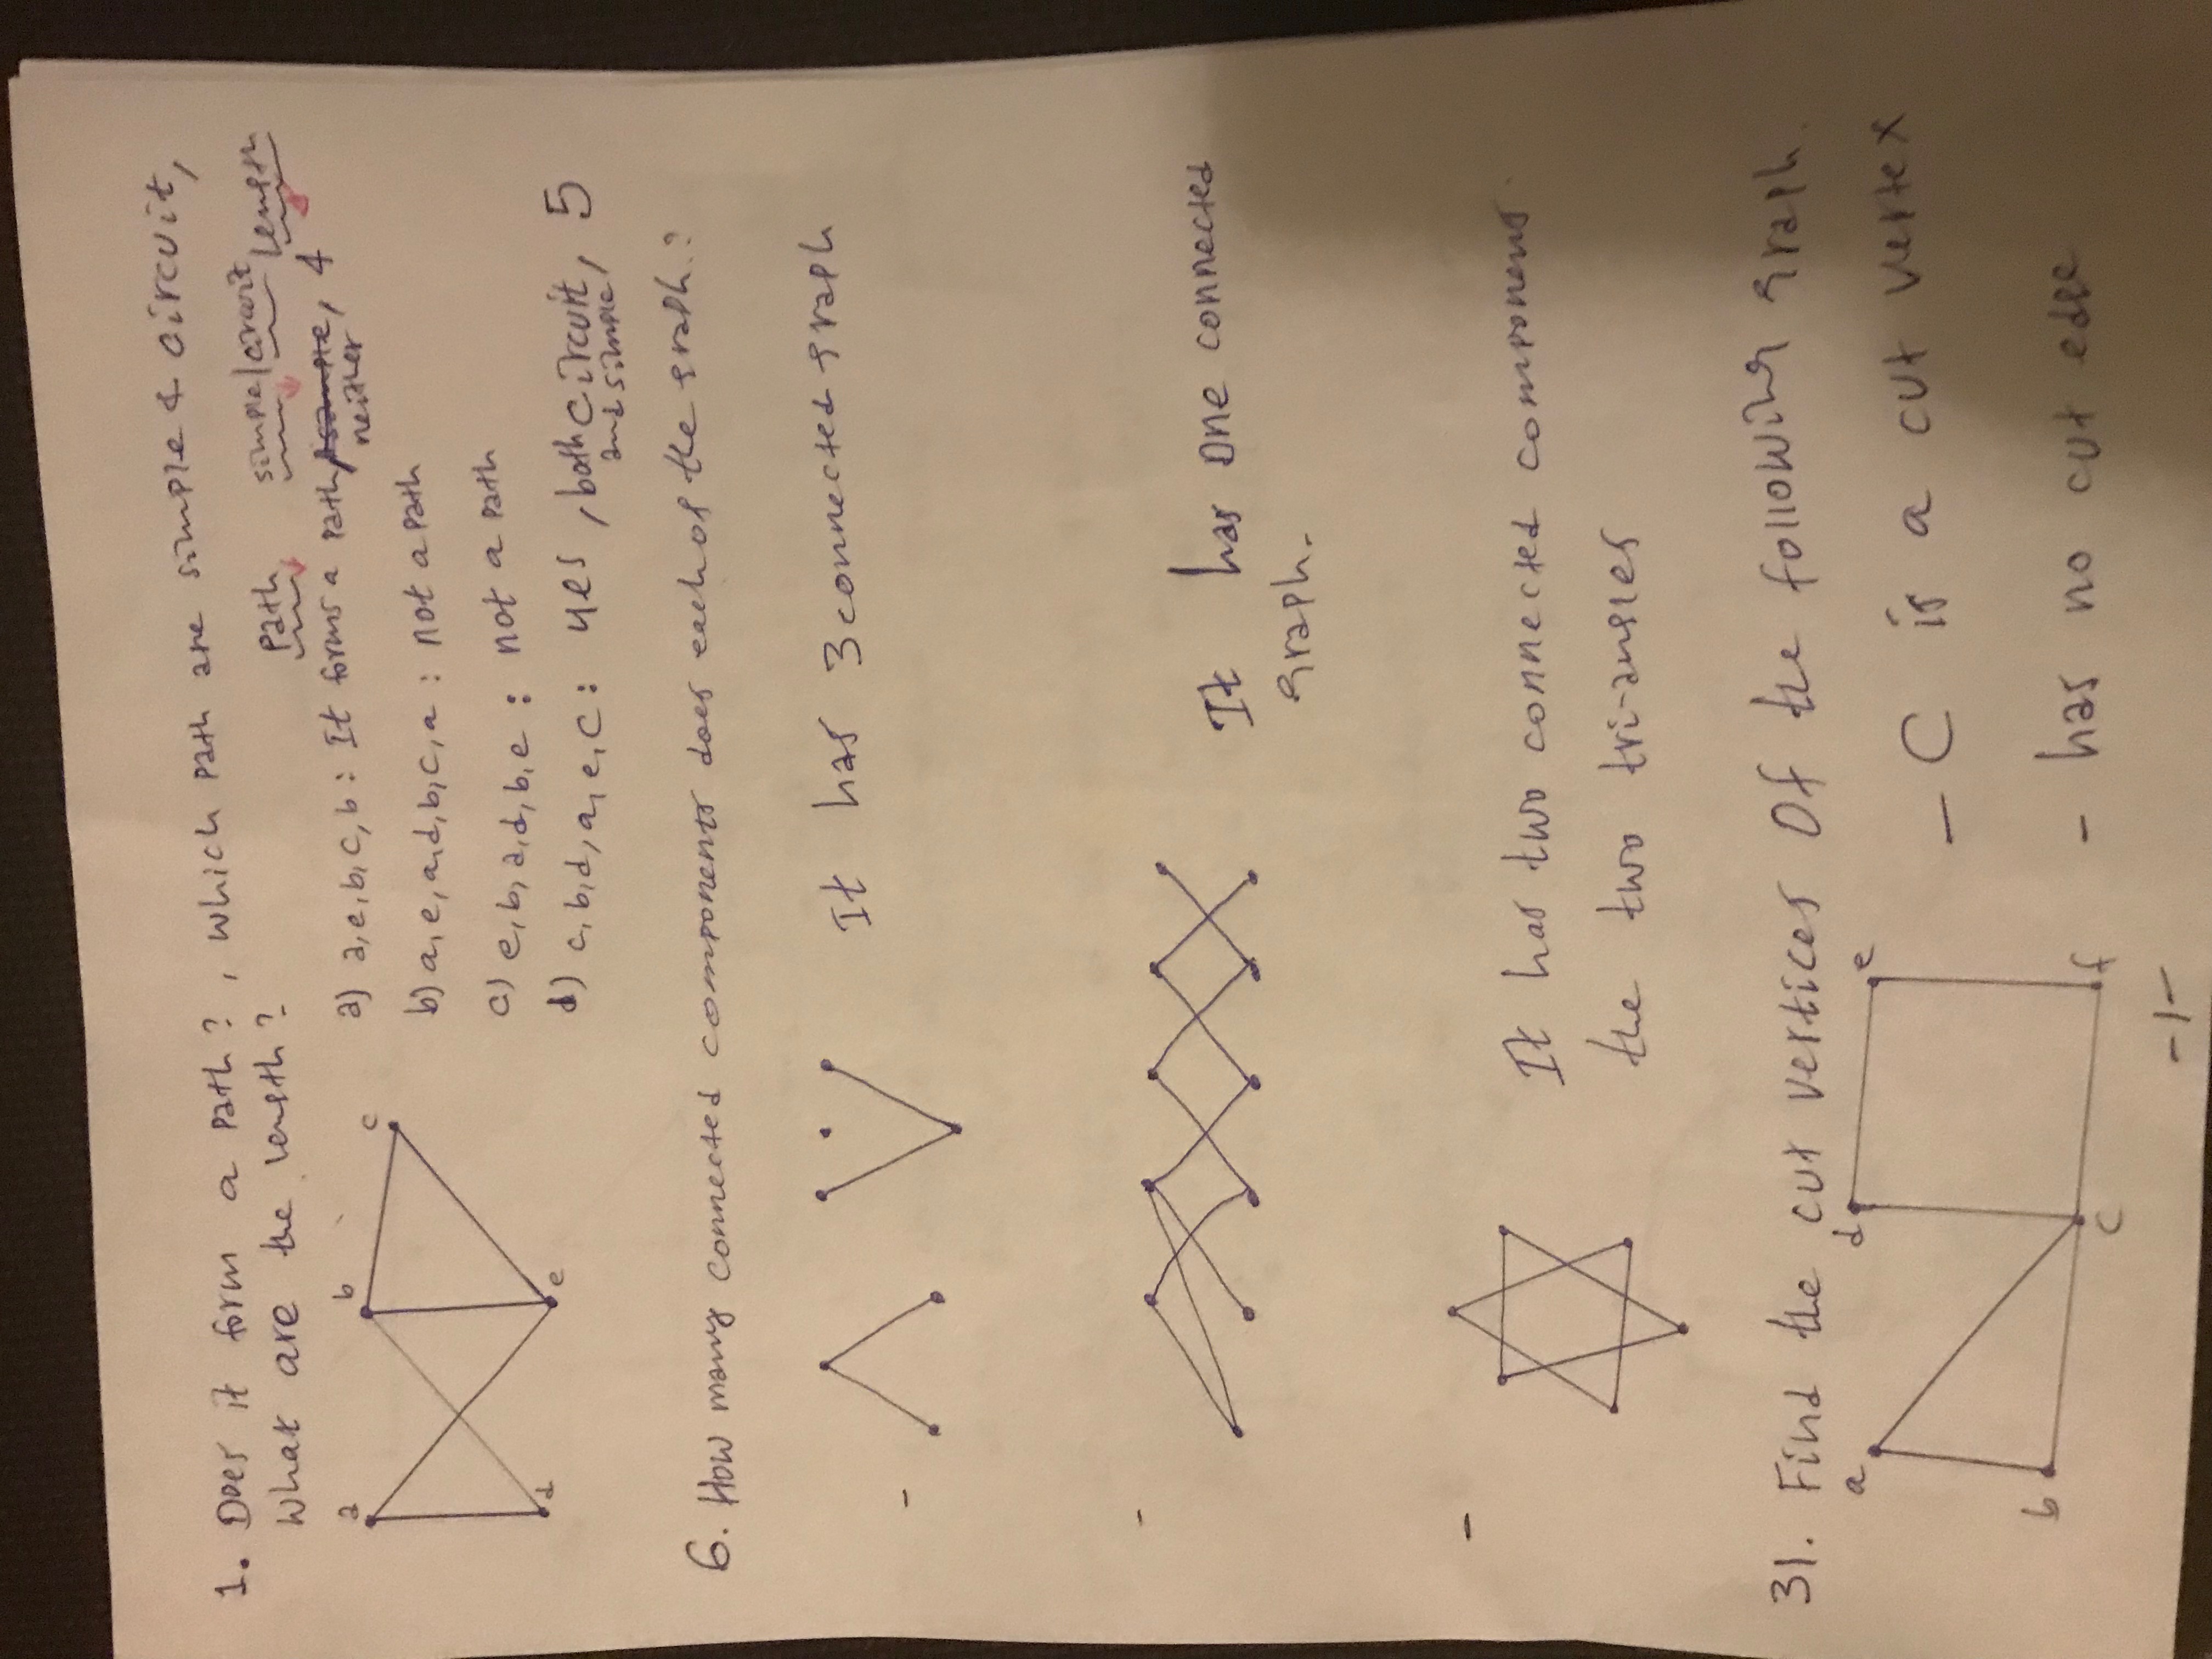 1. Does it form a path? , which path are simple & circuit,
What are the length?
path simple/circuit length
a b c d e
a) a,e,b,c,b : It forms a path, simple, 4
neither
b) a,e,a,d,b,c,a : not a path
c) e,b,a,d,b,e : not a path
d) c,b,d,a,e,c : yes , both circuit, 5
and simple
6. How many connected components does each of the graph.?
- It has 3 connected graph
- It has one connected
graph.
- It has two connected components
the two tri-angles
31. Find the cut vertices Of the following graph.
a d e
b c f
- C is a cut vertex
- has no cut edge
-1-